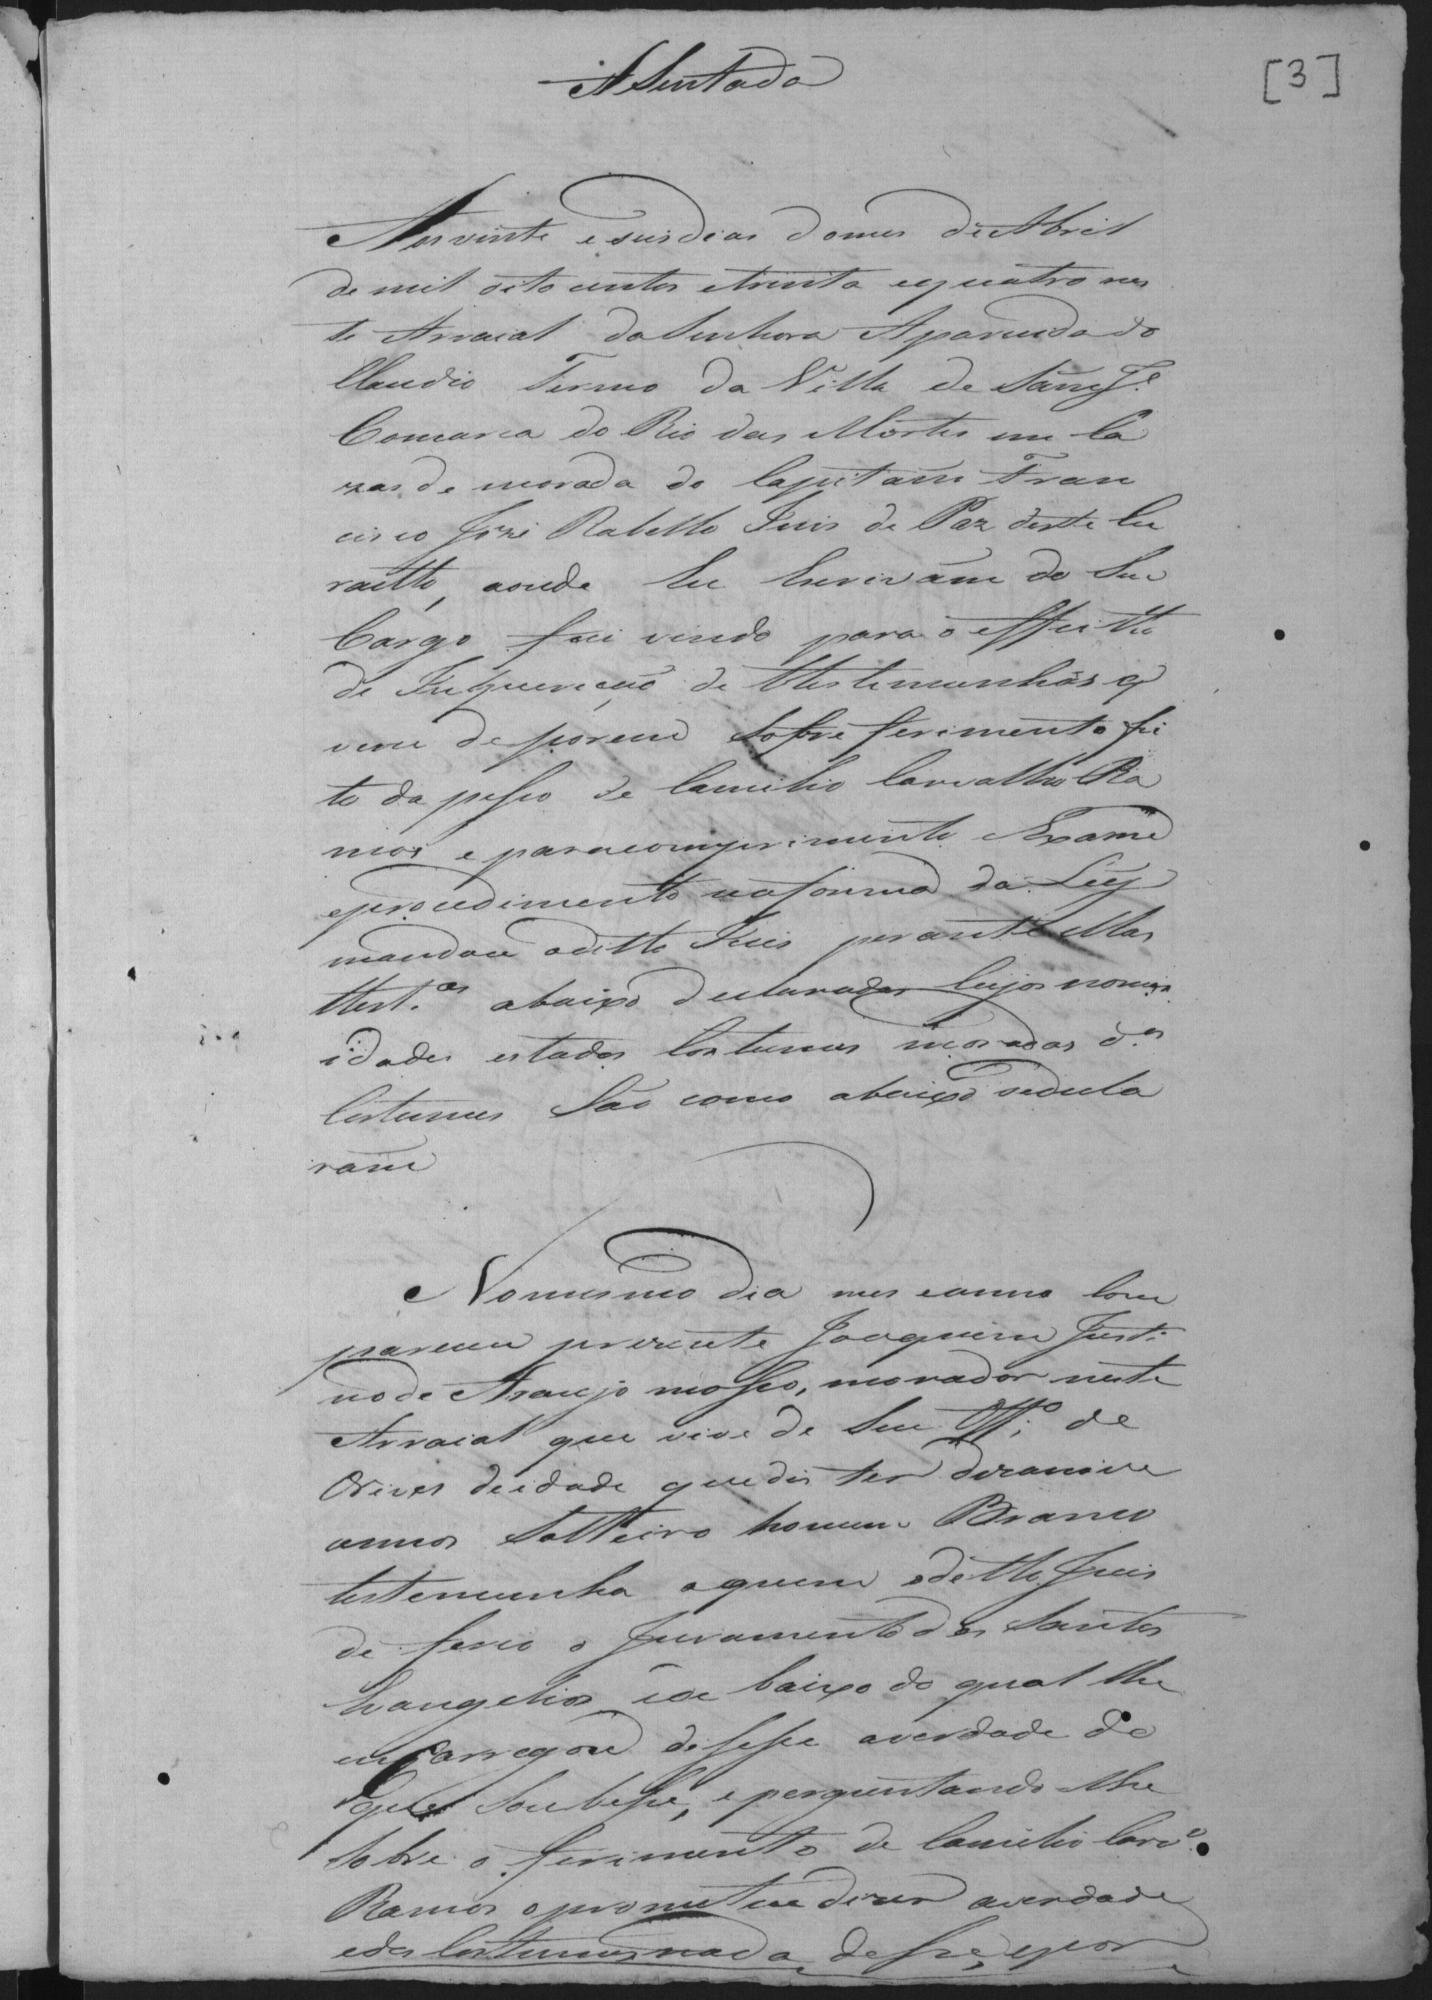 Asentada
[3]
Aos vinte e seis dias do mes de Abril
de mil oito centos e trinta e quatro nes
te Arraial da Senhora Aparecida do
Claudio Termo da Villa de Sam Je
Comarca do Rio das Mortes em Ca
zas de morada do Capitam Fran
cisco Joze Rabello Juis de Paz deste Cu
ratto, aonde Eu Escrivam do Seu
Cargo fui vindo para o effeitto
de Inquerição de ttestemunhas q
vem deporem sobre ferimento fei
to da pesso de Camilio Carvalho Ra
mos e para comprimento Exame
e procedimento na forma da Ley
mandou o ditto Juis perante Mar
ttest.as abaixo declaradas Cujos nomes
idades estados Costumes moradas d.os
Costumes São como abaixo se decla
ram
No mesmo dia mes e anno Com
pareceu prezente Joaquim Justi
no de Araujo mosso, morador neste
Arraial que vive de Seu Off.o de
Orives de idade que dis ter dezanove
annos Soltteiro homem Branco
testemunha a quem o ditto Juis
de ferio o Juramento dos Santos
Evangelios e de baixo do qual lhe
emcarregou dissesse a verdade do
que Soubesse, e perguntando lhe
Sobre o ferimento de Camilio Carv.o
Ramos o prometeu dizer a verdade
e dos Costumes nada disse, e por